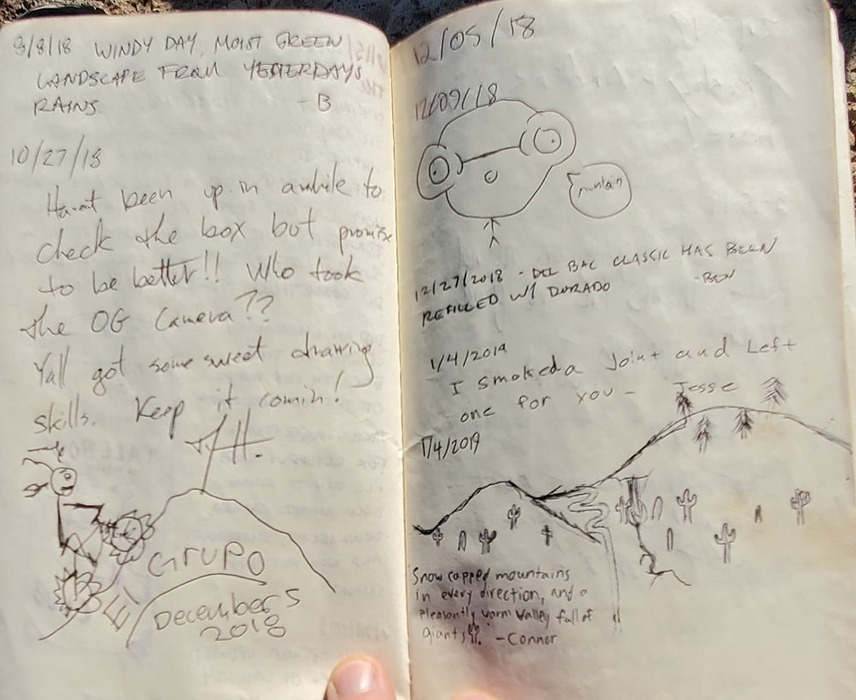 9/8/18 WINDY DAY, MOIST GREEN
LANDSCAPE FROM YESTERDAYS
RAINS. -B
10/27/18
Havnt been up in awhile to
check the box but promise
to be better!! Who took
the OG Camera??
Yall got some sweet drawing
skills. Keep it comin!
El GRUPO
December 5
2018
12/05/18
12/09/18
12/27/2018 - DEL BAC CLASSIC HAS BEEN
REFILLED W/ DORADO -BEN
1/4/2019
I smoked a Joint and Left
one for you - Jesse
1/4/2019
Snow capped mountains
in every direction, and a
pleasantly warm valley full of
giants. -Connor